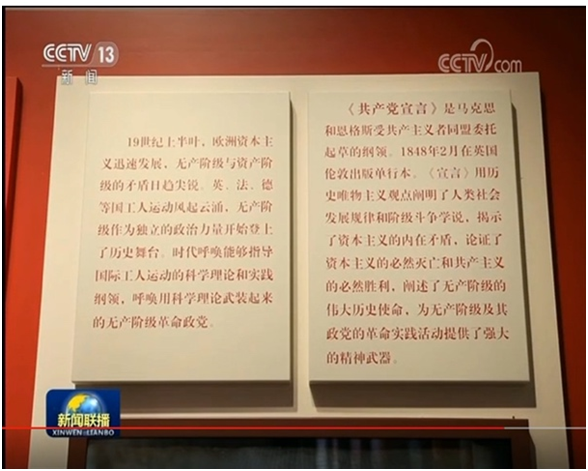 CCTV 13
新闻
CCTV.com
19世纪上半叶，欧洲资本主
义迅速发展，无产阶级与资产阶
级的矛盾日趋尖锐。英、法、德
等国工人运动风起云涌，无产阶
级作为独立的政治力量开始登上
了历史舞台。时代呼唤能够指导
国际工人运动的科学理论和实践
纲领，呼唤用科学理论武装起来
的无产阶级革命政党。
《共产党宣言》是马克思
和恩格斯受共产主义者同盟委托
起草的纲领。1848年2月在英国
伦敦出版单行本。《宣言》用历
史唯物主义观点阐明了人类社会
发展规律和阶级斗争学说，揭示
了资本主义的内在矛盾，论证了
资本主义的必然灭亡和共产主义
的必然胜利，阐述了无产阶级的
伟大历史使命，为无产阶级及其
政党的革命实践活动提供了强大
的精神武器。
新闻联播
XINWEN LIANBO